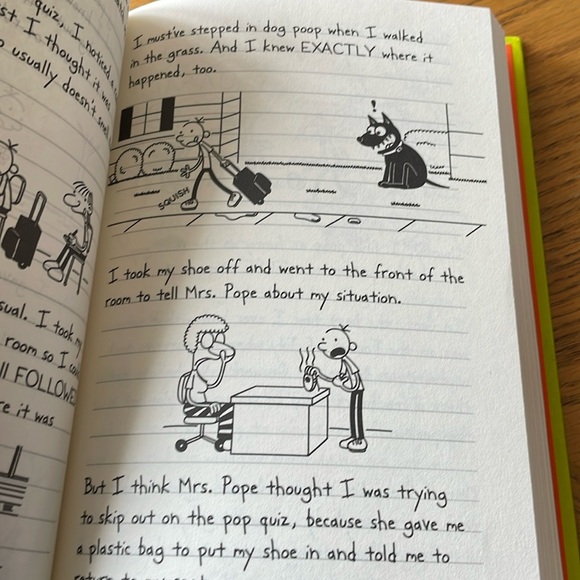 quiz, I noticed
st I thought it was
usually doesn't
I must've stepped in dog poop when I walked
in the grass. And I knew EXACTLY where it
happened, too.
!
SQUISH
sual. I took my
room so I
FOLLOWE
re it was
I took my shoe off and went to the front of the
room to tell Mrs. Pope about my situation.
But I think Mrs. Pope thought I was trying
to skip out on the pop quiz, because she gave me
a plastic bag to put my shoe in and told me to